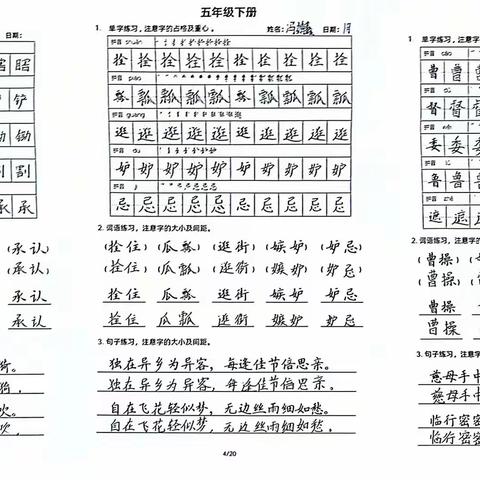 日期：
承
承
(承认)
(承认)
承认
承认
五年级下册
1. 单字练习，注意字的占格及重心。 姓名： 日期： 月
拼音 shuān
拴 拴 拴 拴 拴 拴 拴 拴 拴
拼音 piáo
瓢 瓢 瓢 瓢 瓢 瓢 瓢 瓢 瓢
拼音 guàng
逛 逛 逛 逛 逛 逛 逛 逛 逛
拼音 dù
妒 妒 妒 妒 妒 妒 妒 妒 妒
拼音 jì
忌 忌 忌 忌 忌 忌 忌 忌 忌
2. 词语练习，注意字的大小及间距。
(拴住) (瓜瓢) (逛街) (嫉妒) (妒忌)
(拴住) (瓜瓢) (逛街) (嫉妒) (妒忌)
拴住 瓜瓢 逛街 嫉妒 妒忌
拴住 瓜瓢 逛街 嫉妒 妒忌
3. 句子练习，注意字的大小及间距。
独在异乡为异客，每逢佳节倍思亲。
独在异乡为异客，每逢佳节倍思亲。
自在飞花轻似梦，无边丝雨细如愁。
自在飞花轻似梦，无边丝雨细如愁。
4/20
1. 单字练习，注意字
拼音 cáo
曹 曹 曹
拼音 dū
督 督 督
拼音 wěi
委 委 委
拼音 lǔ
鲁 鲁 鲁
拼音 zhē
遮 遮 遮
2. 词语练习，注意字的
(曹操)
(曹操)
曹操
曹操
3. 句子练习，注意字的
慈母手中
慈母手中
临行密密
临行密密